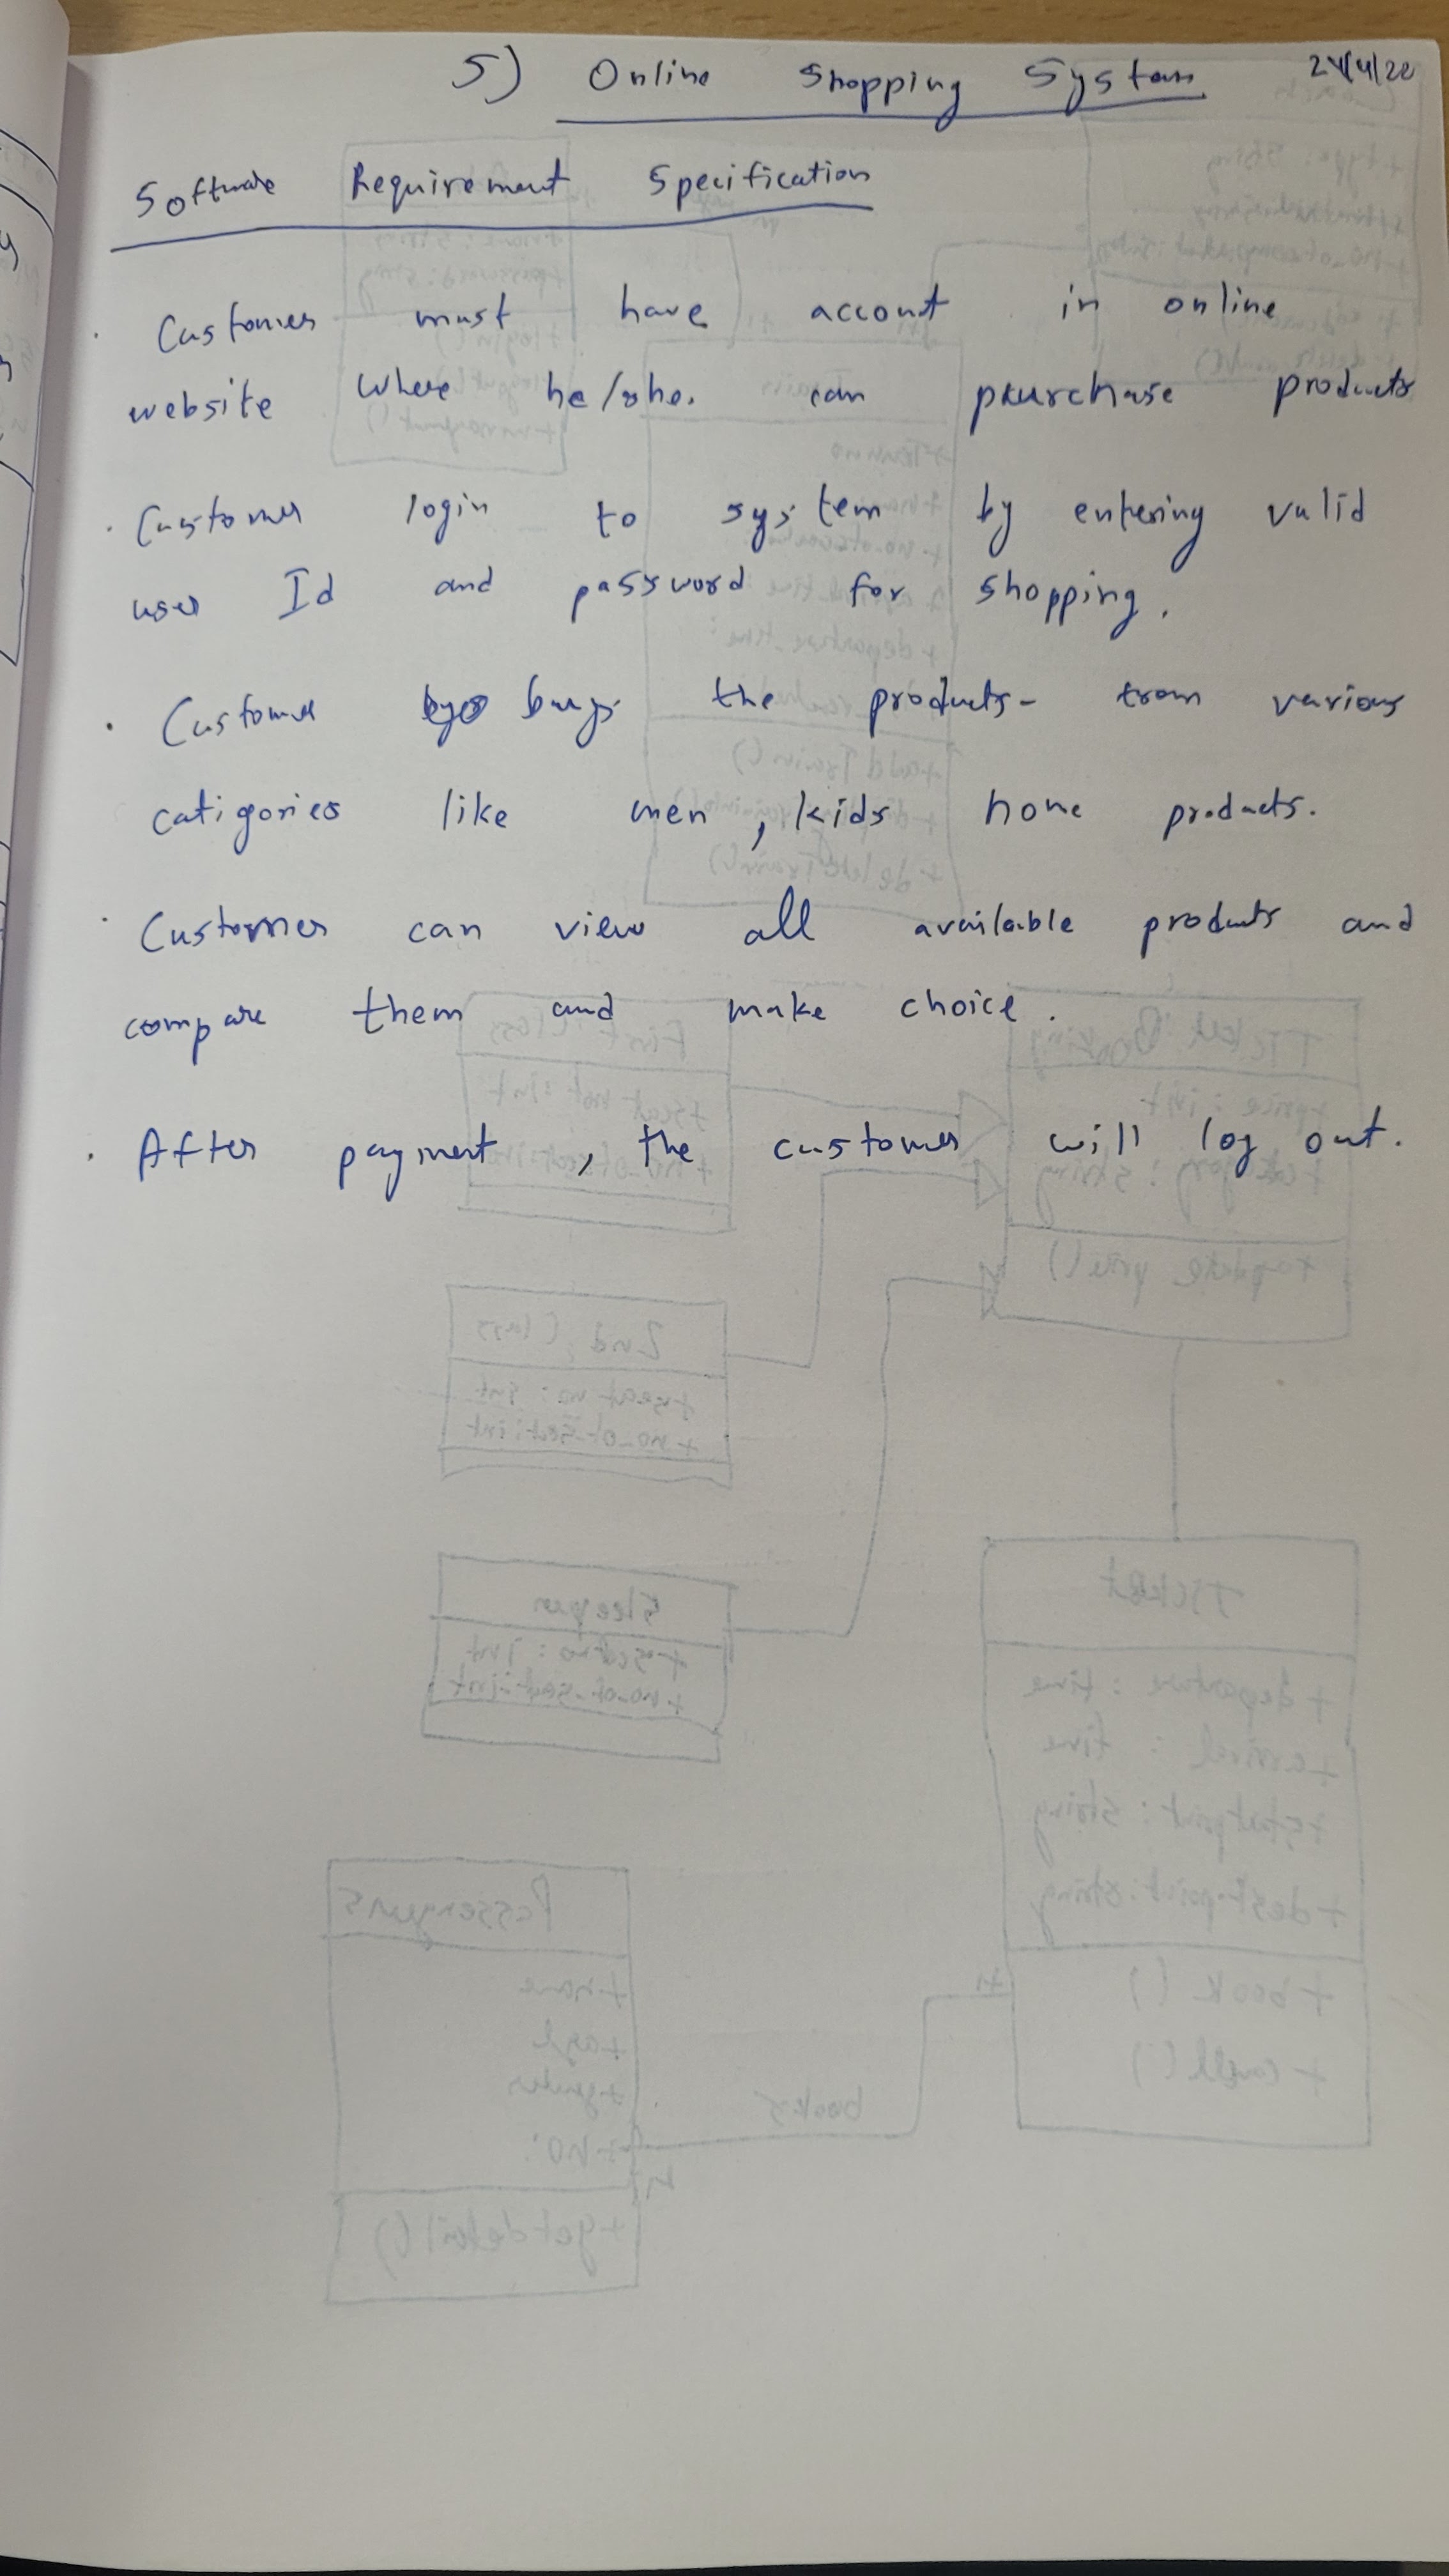 5) Online Shopping System
Software Requirement Specification
· Customer must have account in online
website where he/she. can purchase products
· Customer login to system by entering valid
user Id and password for shopping.
· Customer buys the products- from various
catigories like men, kids home products.
· Customer can view all available products and
compare them and make choice.
· After payment, the customer will log out.